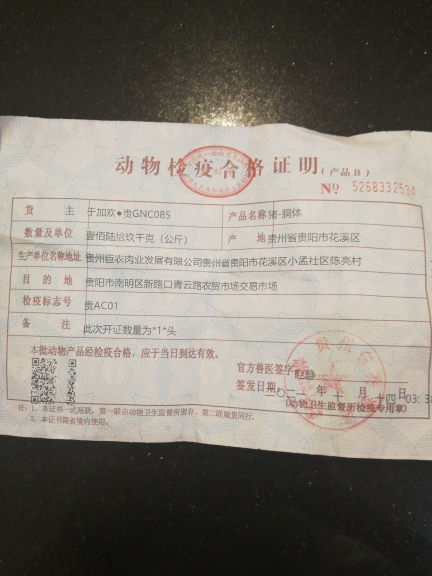 动物检疫合格证明(产品B)
No 5268332534
货 主 于加欢●贵GNC085 产品名称 猪-胴体
数量及单位 壹佰陆拾玖千克（公斤） 产 地 贵州省贵阳市花溪区
生产单位名称地址 贵州巨农肉业发展有限公司贵州省贵阳市花溪区小孟社区陈亮村
目 的 地 贵阳市南明区新路口青云路农贸市场交易市场
检疫标志号 贵AC01
备 注 此次开证数量为"1"头
本批动物产品经检疫合格，应于当日到达有效。
官方兽医签字：赵静
签发日期：二〇二一年十一月二十四日
(动物卫生监督所检疫专用章)
注：1. 本证书一式两联，第一联由动物卫生监督所留存，第二联随货同行。
2. 本证书限省境内使用。